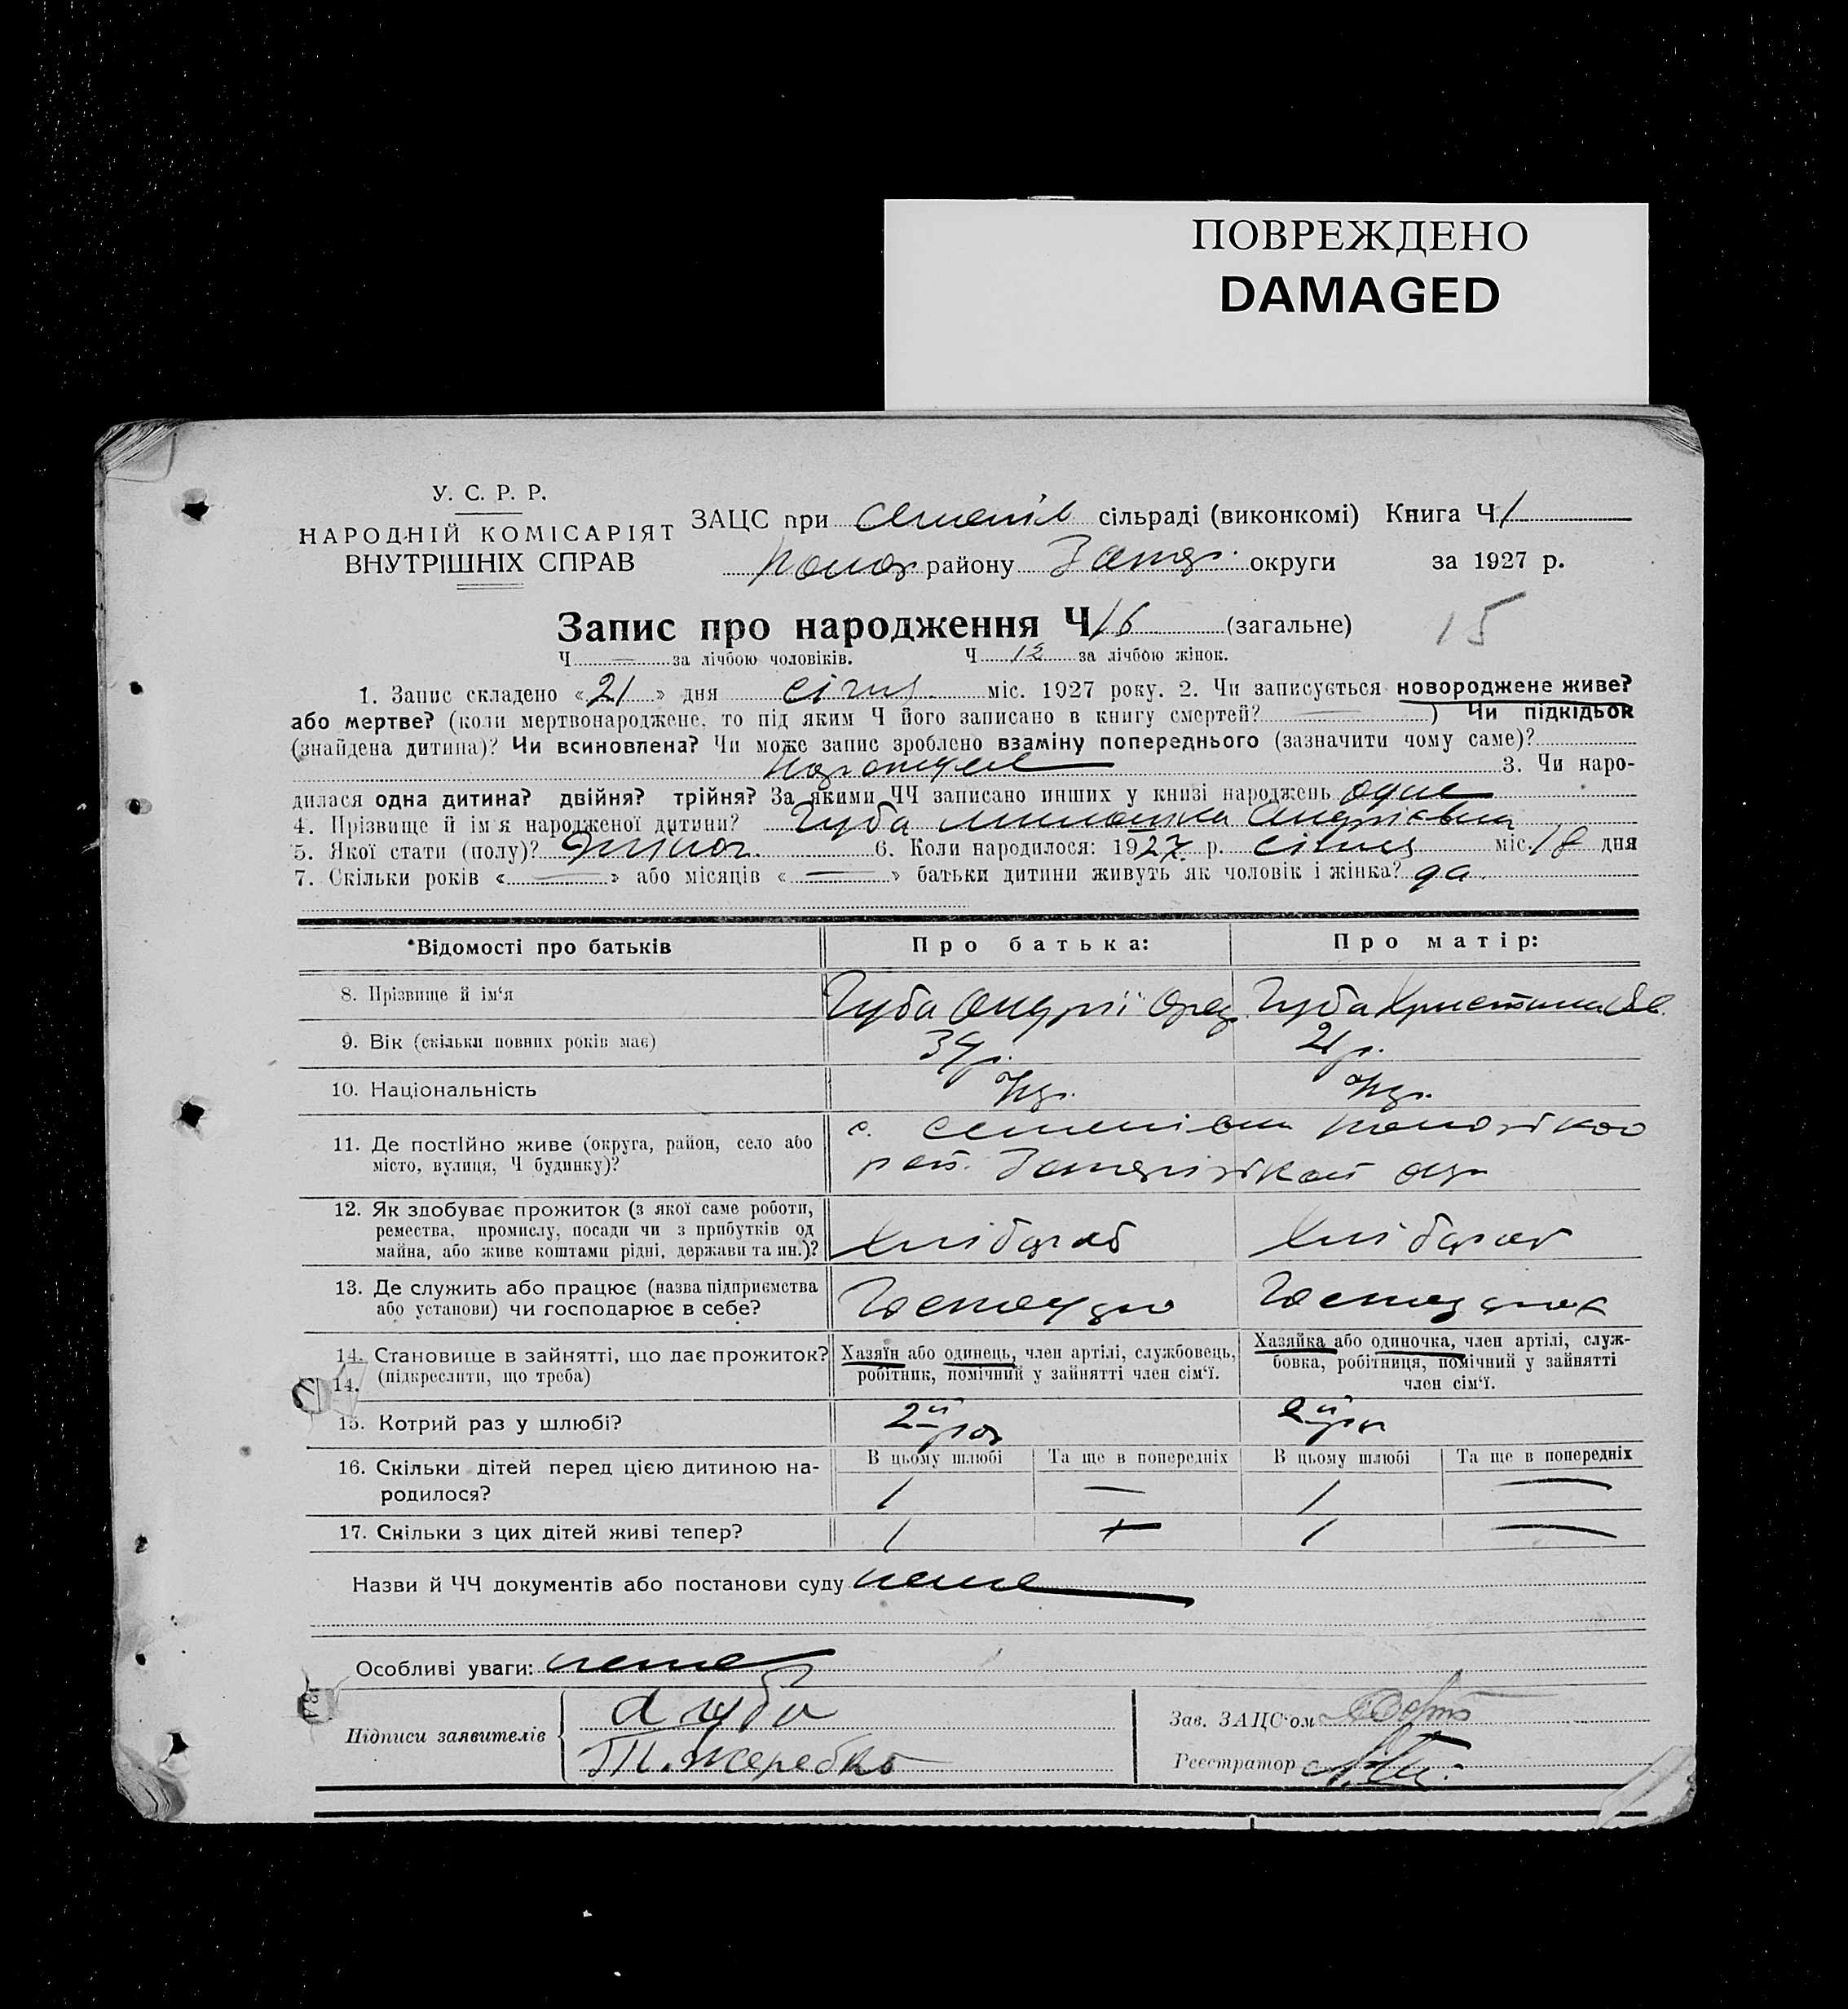 ПОВРЕЖДЕНО
DAMAGED
У. С. Р. Р.
НАРОДНІЙ КОМІСАРІЯТ
ВНУТРІШНІХ СПРАВ
ЗАЦС при Семенів сільраді (виконкомі) Книга Ч 1
району Запор. округи за 1927 р.
Запис про народження Ч 16 (загальне)
15
Ч — за лічбою чоловіків. Ч 12 за лічбою жінок.
1. Запис складено «21» дня січня міс. 1927 року. 2. Чи записується новороджене живе?
або мертве? (коли мертвонароджене, то під яким Ч його записано в книгу смертей? — ) Чи підкідьок
(знайдена дитина)? Чи всиновлена? Чи може запис зроблено взаміну попереднього (зазначити чому саме)?
3. Чи наро-
дилася одна дитина? двійня? трійня? За якими ЧЧ записано инших у книзі народжень одне
4. Прізвище й імя народженої дитини? Губа Андріївна
5. Якої стати (полу)? жіноч. 6. Коли народилося: 1927 р. січня міс. 18 дня
7. Скільки років « — » або місяців « — » батьки дитини живуть як чоловік і жінка? да.
*Відомості про батьків Про батька: Про матір:
8. Прізвище й ім‘я Губа Андрій Губа Христина
9. Вік (скільки повних років має) 21 р.
10. Національність Укр. Укр.
11. Де постійно живе (округа, район, село або
місто, вулиця, Ч будинку)?
с. Семенівка
рай. Запорізької окр
12. Як здобуває прожиток (з якої саме роботи,
ремества, промислу, посади чи з прибутків од
майна, або живе коштами рідні, держави та ин.)?
Хлібороб Хлібороб
13. Де служить або працює (назва підприємства
або установи) чи господарює в себе?
14. Становище в зайнятті, що дає прожиток?
(підкреслити, що треба)
14.
Хазяїн або одинець, член артілі, службовець,
робітник, помічний у зайнятті член сім‘ї.
Хазяйка або одиночка, член артілі, служ-
бовка, робітниця, помічний у зайнятті
член сім‘ї.
15. Котрий раз у шлюбі? 2й раз 2й раз
16. Скільки дітей перед цією дитиною на-
родилося?
В цьому шлюбі Та ще в попередніх В цьому шлюбі Та ще в попередніх
1 — 1 —
17. Скільки з цих дітей живі тепер? 1 — 1 —
Назви й ЧЧ документів або постанови суду нема
Особливі уваги: нема
Підписи заявителів
А Губа
Т. Жеребко
Зав. ЗАЦС‘ом
Реєстратор